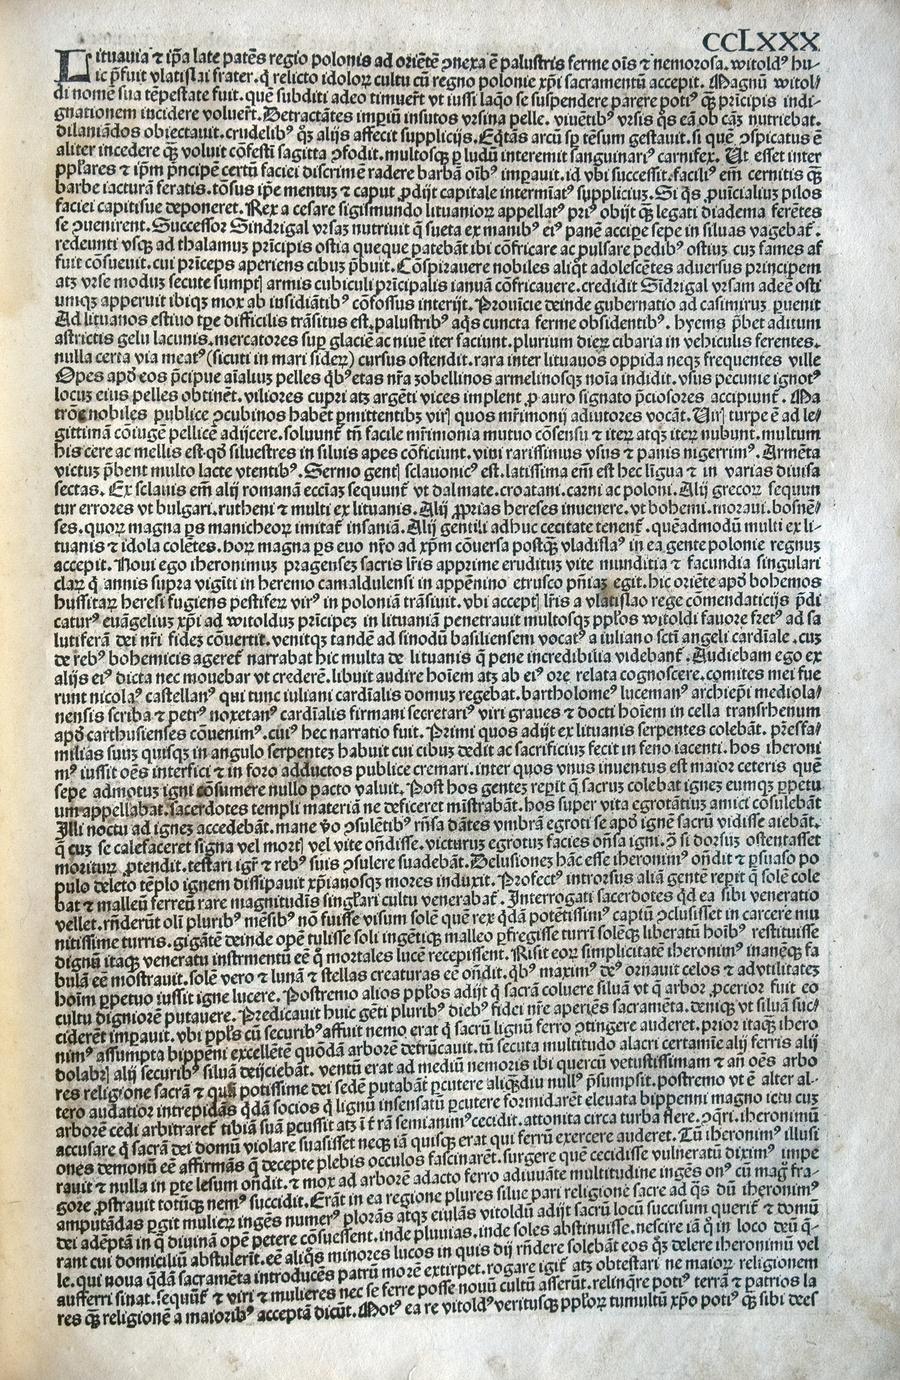 CCLXXX
Lituavia ⁊ ip̄a late patēs regio polonis ad oriētē ↄnexa ē palustris ferme oīs ⁊ nemorosa. witoldꝰ hu-
ic p̄fuit vlatislai frater. q̄ relicto idoloꝝ cultu cū regno polonie xp̄i sacramentū accepit. Magnū witol/
di nomē sua tēpestate fuit. quē subditi adeo timuer̄t vt iussi laq̄o se suspendere parere potiꝰ q̄ꝫ pr̄icipis indi-
gnationem incidere voluer̄t. Detractātes imp̄iū insutos vrsina pelle. viuētibꝰ vrsis q̄s eā ob cāꝫ nutriebat.
dilaniādos obiectauit. crudelibꝰ q̄ꝫ alijs affecit supplicijs. Eq̄tās arcū sp̄ tēsum gestauit. si quē ↄspicatus ē
aliter incedere q̄ꝫ voluit cōfesti sagitta ↄfodit. multosqꝫ ꝑ ludū interemit sanguinariꝰ carnifex. Ut esset inter
pp̄lares ⁊ ip̄m pn̄cipē certū faciei discrimē radere barbā oībꝰ imꝑauit. id vbi successit. faciliꝰ em̄ cernitis q̄ꝫ
barbe iacturā feratis. tōsus ip̄e mentuꝫ ⁊ caput ꝓdijt capitale intermīatꝰ suppliciuꝫ. Si q̄s ꝓuīcialiuꝫ pilos
faciei capitisue deponeret. Rex a cesare sigismundo lituanioꝝ appellatꝰ priꝰ obijt q̄ꝫ legati diadema ferētes
se ↄuenirent. Successor Sindrigal vrsaꝫ nutriuit q̄ sueta ex manibꝰ eiꝰ panē accipe sepe in siluas vagebat̄.
redeunti vsqꝫ ad thalamuꝫ pr̄icipis ostia queque patebāt ibi cōfricare ac pulsare pedibꝰ ostiuꝫ cuꝫ fames af
fuit cōsueuit. cui pr̄iceps aperiens cibuꝫ p̄buit. Cōspirauere nobiles aliq̄t adolescētes aduersus principem
atꝫ vrse moduꝫ secute sumptꝭ armis cubiculi pr̄icipalis ianuā cōfricauere. credidit Sīdrigal vrsam adeē osti
umqꝫ apperuit ibiqꝫ mox ab insidiātibꝰ cōfossus interijt. Prouīcie deinde gubernatio ad casimiruꝫ ꝑuenit
Ad lituanos estiuo tꝑe difficilis trāsitus est. palustribꝰ aq̄s cuncta ferme obsidentibꝰ. hyems p̄bet aditum
astrictis gelu lacunis. mercatores suꝑ glaciē ac niuē iter faciunt. plurium dieꝝ cibaria in vehiculis ferentes.
nulla certa via meatꝰ (sicuti in mari sideꝝ) cursus ostendit. rara inter lituauos oppida neqꝫ frequentes ville
Opes apō eos p̄cipue aīaliuꝫ pelles q̄bꝰ etas nr̄a zobellinos armelinosqꝫ noīa indidit. vsus pecunie ignotꝰ
locuꝫ eius pelles obtinēt. viliores cupri atꝫ argēti vices implent ꝓ auro signato p̄ciosores accipiunt̄. Ma
trōe nobiles publice ↄcubinos habēt ꝑmittentibꝫ virꝭ quos mr̄imonij adiutores vocāt. Uirꝭ turpe ē ad le/
gittimā cōiugē pellicē adijcere. soluunt̄ tn̄ facile mr̄imonia mutuo cōsensu ⁊ iteꝝ atqꝫ iteꝝ nubunt. multum
his cere ac mellis est. qd̄ siluestres in siluis apes cōficiunt. vini rarissimus vsus ⁊ panis nigerrimꝰ. Armēta
victuꝫ p̄bent multo lacte vtentibꝰ. Sermo gentꝭ sclauonicꝰ est. latissima em̄ est hec līgua ⁊ in varias diuisa
sectas. Ex sclauis em̄ alij romanā eccl̄iaꝫ sequunt̄ vt dalmate. croatani. carni ac poloni. Alij grecoꝝ sequun
tur errores vt bulgari. rutheni ⁊ multi ex lituanis. Alij ꝓprias hereses inuenere. vt bohemi. moraui. bosnē/
ses. quoꝝ magna ꝑs manicheoꝝ imitat̄ insaniā. Alij gentili adhuc cecitate tenent̄. quēadmodū multi ex li-
tuanis ⁊ idola colētes. hoꝝ magna ꝑs euo nr̄o ad xp̄m cōuersa postq̄ꝫ vladislaꝰ in ea gente polonie regnuꝫ
accepit. Noui ego iheronimuꝫ pragenseꝫ sacris lr̄is apprime erudituꝫ vite munditia ⁊ facundia singulari
claꝝ q̄ annis supra vigīti in heremo camaldulensi in appēnino etrusco pn̄iaꝫ egit. hic oriēte apō bohemos
hussitaꝝ heresi fugiens pestifeꝝ virꝰ in poloniā trāsiuit. vbi acceptꝭ lr̄is a vlatislao rege cōmendaticijs p̄di
caturꝰ euāgeliuꝫ xp̄i ad witolduꝫ pr̄icipeꝫ in lituaniā penetrauit multosqꝫ pp̄los witoldi fauore fretꝰ ad sa
lutiferā dei nr̄i fideꝫ cōuertit. venitqꝫ tandē ad sinodū basiliensem vocatꝰ a iuliano sctī angeli cardīale. cuꝫ
de rebꝰ bohemicis ageret̄ narrabat hic multa de lituanis q̄ pene incredibilia videbant̄. Audiebam ego ex
alijs eiꝰ dicta nec mouebar vt crederē. libuit audire hoīem atꝫ ab eiꝰ ore relata cognoscere. comites mei fue
runt nicolaꝰ castellanꝰ qui tunc iuliani cardīalis domuꝫ regebat. bartholomeꝰ lucemanꝰ archiep̄i mediola/
nensis scriba ⁊ petrꝰ noxetanꝰ cardīalis firmani secretariꝰ viri graues ⁊ docti hoīem in cella transrhenum
apō carthusienses cōuenimꝰ. cuiꝰ hec narratio fuit. Primi quos adijt ex lituanis serpentes colebāt. pr̄esfa/
milias suuꝫ quisqꝫ in angulo serpenteꝫ habuit cui cibuꝫ dedit ac sacrificiuꝫ fecit in feno iacenti. hos iheroni
mꝰ iussit oēs interfici ⁊ in foro adductos publice cremari. inter quos vnus inuentus est maior ceteris quē
sepe admotuꝫ igni cōsumere nullo pacto valuit. Post hos genteꝫ reꝑit q̄ sacruꝫ colebat igneꝫ eumqꝫ ꝑpetu
um appellabat. sacerdotes templi materiā ne deficeret mīstrabāt. hos super vita egrotātiuꝫ amici cōsulebāt
Illi noctu ad igneꝫ accedebāt. mane v̄o ↄsulētibꝰ rn̄sa dātes vmbrā egroti se apō ignē sacrū vidisse aiebāt.
q̄ cuꝫ se calefaceret signa vel mortꝭ vel vite on̄disse. victuruꝫ egrotuꝫ facies on̄sa igni. ↄ̄ si dorsuꝫ ostentasset
morituꝝ ꝓtendit. testari igr̄ ⁊ rebꝰ suis ↄsulere suadebāt. Delusiones hāc esse iheronimꝰ on̄dit ⁊ ꝑsuaso po
pulo deleto tēplo ignem dissipauit xp̄ianosqꝫ mores induxit. Profectꝰ introrsus aliā gentē reꝑit q̄ solē cole
bat ⁊ malleū ferreū rare magnitudīs singl̄ari cultu venerabat̄. Interrogati sacerdotes qd̄ ea sibi veneratio
vellet. rn̄derūt oli pluribꝰ mēsibꝰ nō fuisse visum solē quē rex qd̄ā potētissimꝰ captū ↄclusisset in carcere mu
nitissime turris. gigātē deinde opē tulisse soli ingētiqꝫ malleo ꝑfregisse turrī solēqꝫ liberatū hoībꝰ restituisse
dignū itaqꝫ veneratu instrmentū eē q̄ mortales lucē recepissent. Risit eoꝝ simplicitatē iheronimꝰ inanēqꝫ fa
bulā eē mōstrauit. solē vero ⁊ lunā ⁊ stellas creaturas eē on̄dit. q̄bꝰ maximꝰ deꝰ ornauit celos ⁊ ad vtilitateꝫ
hoīm ꝑpetuo iussit igne lucere. Postremo alios pp̄los adijt q̄ sacrā coluere siluā vt q̄ arbor ꝓcerior fuit eo
cultu digniorē putauere. Predicauit huic gēti pluribꝰ diebꝰ fidei nr̄e aperiēs sacramēta. deniqꝫ vt siluā suc/
ciderēt imꝑauit. vbi pp̄ls cū securibꝰ affuit nemo erat q̄ sacrū lignū ferro ↄtingere auderet. prior itaqꝫ ihero
nimꝰ assumpta bippēni excellētē quōdā arborē detrūcauit. tū secuta multitudo alacri certamīe alij ferris alij
dolabrꝭ alij securibꝰ siluā deijciebāt. ventū erat ad mediū nemoris ibi quercū vetustissimam ⁊ an̄ oēs arbo
res religione sacrā ⁊ quā potissime dei sedē putabāt ꝑcutere aliqꝫdiu nullꝰ p̄sumpsit. postremo vt ē alter al-
tero audatior intrepidās qd̄ā socios q̄ lignū insensatū ꝑcutere formidarēt eleuata bippenni magno ictu cuꝫ
arborē cedi arbitraret̄ tibiā suā ꝑcussit atꝫ ī t̄rā semianimꝰ cecidit. attonita circa turba flere. ↄq̄ri. iheronimū
accusare q̄ sacrā dei domū violare suasisset neqꝫ iā quisqꝫ erat qui ferrū exercere auderet. Tū iheronimꝰ illusi
ones demonū eē affirmās q̄ decepte plebis occulos fascinarēt. surgere quē cecidisse vulneratū diximꝰ impe
rauit ⁊ nulla in ꝑte lesum on̄dit. ⁊ mox ad arborē adacto ferro adiuuāte multitudine ingēs onꝰ cū magꝰ fra-
gore ꝓstrauit totūqꝫ nemꝰ succidit. Erāt in ea regione plures silue pari religione sacre ad q̄s dū iheronimꝰ
amputādas ꝑgit mulieꝝ ingēs numerꝰ plorās atqꝫ eiulās vitoldū adijt sacrū locū succisum querit̄ ⁊ domū
dei adēptā in q̄ diuinā opē petere cōsuessent. inde pluuias. inde soles abstinuisse. nescire iā q̄ in loco deū q̄-
rant cui domiciliū abstulerīt. eē aliq̄s minores lucos in quis dij rn̄dere solebāt eos q̄ꝫ delere iheronimū vel
le. qui noua qd̄ā sacramēta introducēs patrū morē extirpet. rogare igit̄ atꝫ obtestari ne maioꝝ religionem
aufferri sinat. sequūt̄ ⁊ viri ⁊ mulieres nec se ferre posse nouū cultū asserūt. relinq̄re potiꝰ terrā ⁊ patrios la
res q̄ꝫ religionē a maioribꝰ acceptā dicūt. Motꝰ ea re vitoldꝰ veritusqꝫ pp̄loꝝ tumultū xp̄o potiꝰ q̄ꝫ sibi dees